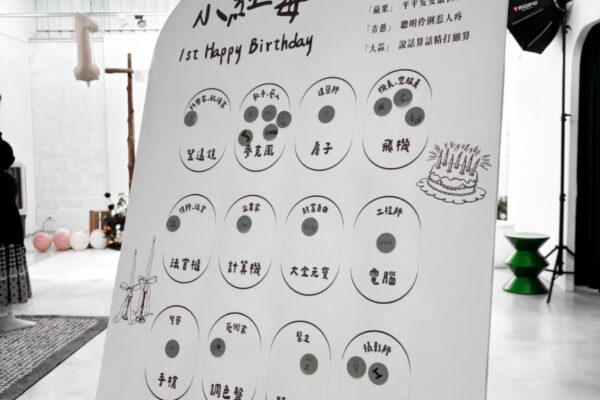 小紅莓
1st Happy Birthday
「蘋果」平平安安
「青蔥」聰明伶俐惹人疼
「大蒜」說話算話精打細算
TRIOPO
望遠鏡
歌手、藝人
麥克風
建築師
房子
機長、空服員
飛機
律師、法官
法官槌
企業家
計算機
財富自由
大金元寶
工程師
電腦
軍家
手槍
藝術家
調色盤
醫生
攝影師